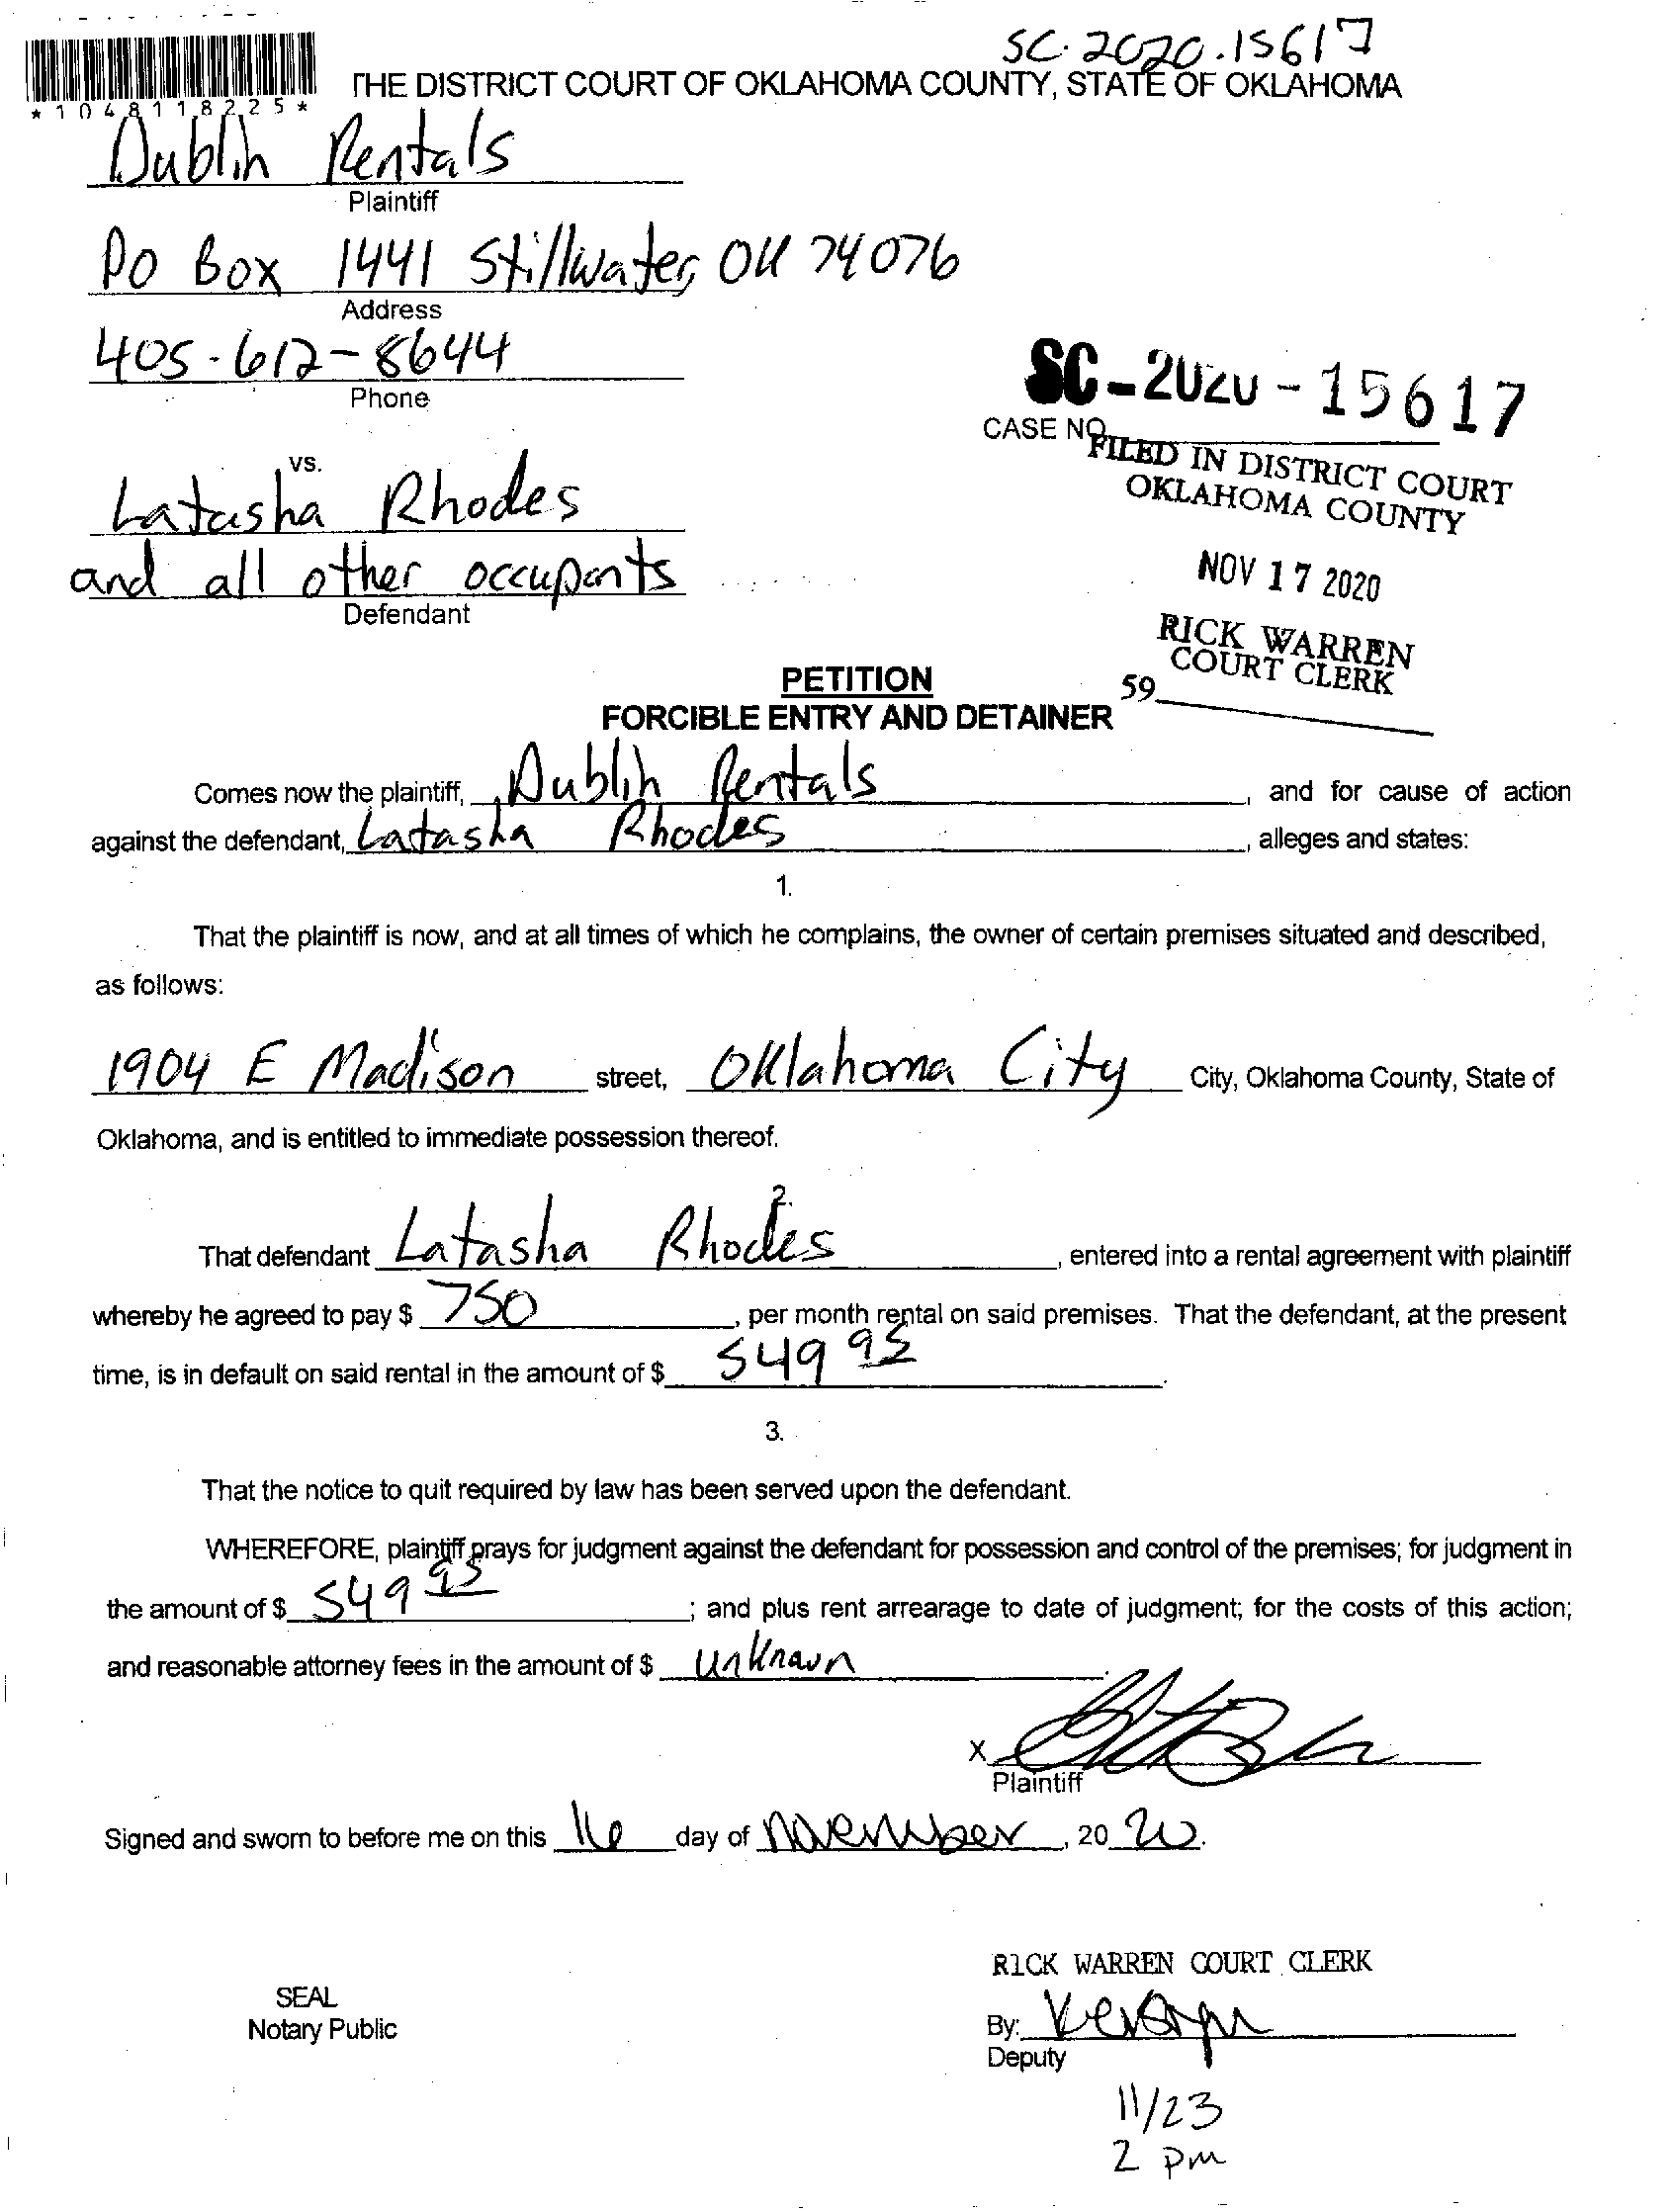 SC-2020-15617
THE DISTRICT COURT OF OKLAHOMA COUNTY, STATE OF OKLAHOMA
*1048118225*
Dublin Rentals
Plaintiff
PO Box 1441 Stillwater, OK 74076
Address
405-612-8644
Phone
SC-2020-15617
CASE NO.
FILED IN DISTRICT COURT
OKLAHOMA COUNTY
vs.
Latasha Rhodes
and all other occupants
Defendant
NOV 17 2020
RICK WARREN
COURT CLERK
59
PETITION
FORCIBLE ENTRY AND DETAINER
Comes now the plaintiff, Dublin Rentals, and for cause of action
against the defendant, Latasha Rhodes, alleges and states:
1.
That the plaintiff is now, and at all times of which he complains, the owner of certain premises situated and described,
as follows:
1904 E Madison street, Oklahoma City City, Oklahoma County, State of
Oklahoma, and is entitled to immediate possession thereof.
2.
That defendant Latasha Rhodes, entered into a rental agreement with plaintiff
whereby he agreed to pay $ 750, per month rental on said premises. That the defendant, at the present
time, is in default on said rental in the amount of $ 549 95.
3.
That the notice to quit required by law has been served upon the defendant.
WHEREFORE, plaintiff prays for judgment against the defendant for possession and control of the premises; for judgment in
the amount of $ 549 95; and plus rent arrearage to date of judgment; for the costs of this action;
and reasonable attorney fees in the amount of $ unknown.
X
Plaintiff
Signed and sworn to before me on this 16 day of November, 20 20.
RICK WARREN COURT CLERK
SEAL
Notary Public
By:
Deputy
11/23
2 pm